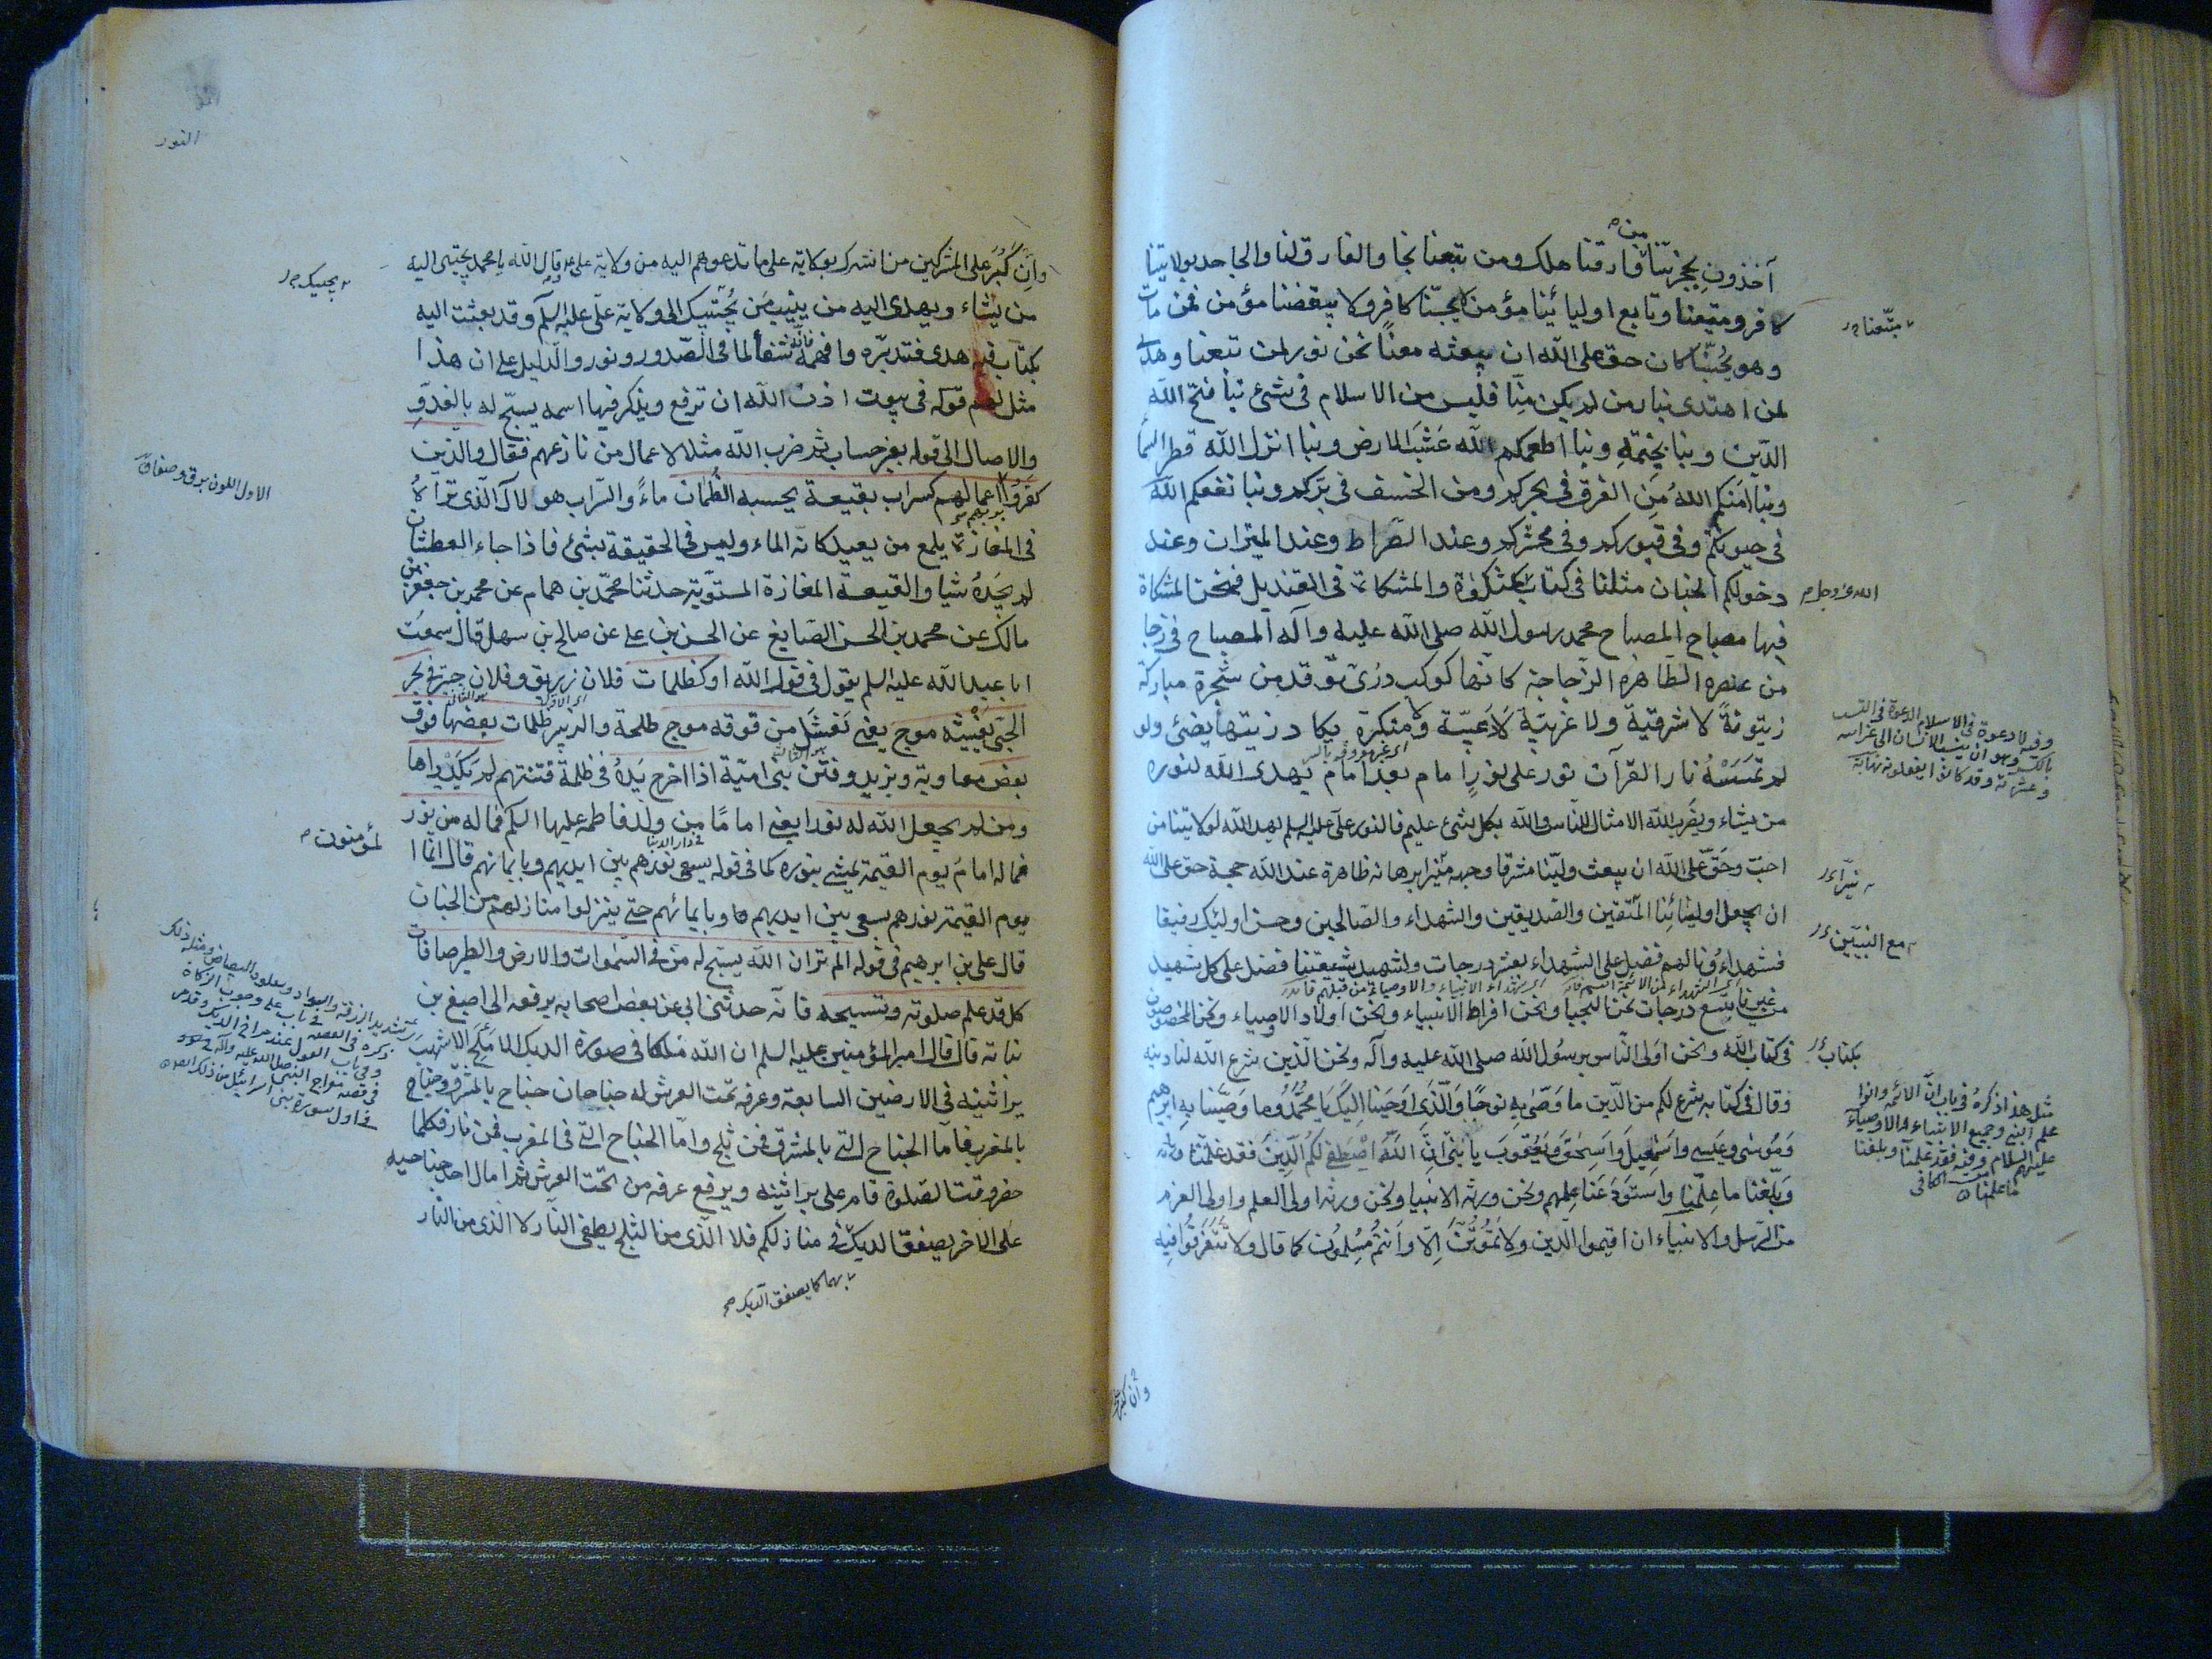 من
آخذون بحجزتنا فارقنا هلك ومن تبعنا نجا والمفارق لنا والجاحد بولايتنا
كافر ومتبعنا وتابع اوليائنا مؤمن لا يحبنا كافر ولا يبغضنا مؤمن فمن مات
وهو يحبنا كان حق على الله ان يبعثه معنا نحن نور لمن تبعنا وهدى
لمن اهتدى بنا ومن لم يكن منا فليس من الاسلام فى شئ بنا فتح الله
الدين وبنا يختمه وبنا اطعمكم الله عشب الارض وبنا انزل الله قطر السماء
وبنا آمنكم الله من الغرق فى بحركم ومن الخسف فى بركم وبنا نفعكم الله
فى حيوتكم وفى قبوركم وفى محشركم وعند الصراط وعند الميزان وعند
دخولكم الجنان مثلنا فى كتاب كمثل مشكوة والمشكاة فى القنديل فنحن المشكاة
فيها مصباح المصباح محمد رسول الله صلى الله عليه وآله المصباح فى زجاجة
من عنصره الطاهرة الزجاجة كانها كوكب درى توقد من شجرة مباركة
زيتونة لا شرقية ولا غربية لا دعية ولا منكرة يكاد زيتها يضئ ولو
لم تمسسه نار القرآن نور على نور امام بعد امام يهدى الله لنوره
من يشاء ويضرب الله الامثال للناس والله بكل شئ عليم فالنور على عليه السلم يهدى الله لولايتنا من
احب وحق على الله ان يبعث ولينا مشرقا وجهه منيرا برهانه ظاهرة عند الله حجته حق على الله
ان يجعل اوليائنا المتقين والصديقين والشهداء والصالحين وحسن اولئك رفيقا
فشهداؤنا لهم فضل على الشهداء بعشر درجات ولشهيد شيعتنا فضل على كل شهيد
من غيرنا بتسع درجات نحن النجباء ونحن افراط الانبياء ونحن اولاد الاوصياء ونحن المخصوصون
فى كتاب الله ونحن اولى الناس برسول الله صلى الله عليه وآله ونحن الذين شرع الله لنا دينه
وقال فى كتابه شرع لكم من الدين ما وصى به نوحا والذى اوحينا اليك يا محمد وما وصينا به ابرهيم
وموسى وعيسى واسمعيل واسحق ويعقوب يا بنى ان الله اصطفى لكم الدين فقد علمنا
وبلغنا ما علمنا واستودعنا علمهم ونحن ورثة الانبيا ونحن ورثة اولى العلم واولى العزم
من الرسل والانبياء ان اقيموا الدين ولا تموتن الا وانتم مسلمون كما قال ولا تتفرقوا فيه
متبعنا
الله عز وجل
وفيه لا دعوة فى الاسلام الدعوة فى النسب
بالكسر وهو ان ينتسب الانسان الى غير ابيه
وعشيرته وقد كانوا يفعلونه
نيرا
مع النبيين
بكتاب
مثل هذا ذكره فى باب ان الائمة ورثوا
علم النبى وجميع الانبياء والاوصياء
عليهم السلام وفيه فقد علمنا وبلغنا
ما علمنا من الكافى
وان كبر على
النور
وان كبر على المشركين من اشرك بولاية على ما تدعوهم اليه من ولاية على ع وقال الله يا محمد يجتبى اليه
من يشاء ويهدى اليه من ينيب من يجيبك الى ولاية على عليه السلم وقد بعثت اليه
بكتاب فيه هدى فتدبره وافهمه فانه شفآء لما فى الصدور ونور والدليل على ان هذا
مثل لهم قوله فى بيوت اذن الله ان ترفع ويذكر فيها اسمه يسبح له بالغدو
والاصال الى قوله بغير حساب ثم ضرب الله مثلا لاعمال من نازعهم فقال والذين
كفروا اعمالهم كسراب بقيعة يحسبه الظمآن ماء والسراب هو الآل الذى تراه
فى المفازة يلمع من بعيد كانه الماء وليس فى الحقيقة بشئ فاذا جاء العطشان
لم يجده شيا والقيعة المفازة المستوية حدثنا محمد بن همام عن محمد بن جعفر بن
مالك عن محمد بن الحسن الصايغ عن الحسن بن على عن صالح بن سهل قال سمعت
ابا عبد الله عليه السلم يقول فى قول الله او كظلمات فلان زريق وفلان حبتر فى بحر
لجى يغشيه موج يعنى نعثل من فوقه موج طلحة والزبير ظلمات بعضها فوق
بعض معاوية ويزيد وفتن بنى امية اذا اخرج يده فى ظلمة فتنتهم لم يكد يراها
ومن لم يجعل الله له نورا يعنى اماما من ولد فاطمة عليها السلم فما له من نور
فما له امام يوم القيمة يمشى بنوره كما فى قوله يسعى نورهم بين ايديهم وبايمانهم قال انما
يوم القيمة نورهم يسعى بين ايديهم وبايمانهم حتى ينزلوا منازلهم من الجنان
قال على بن ابرهيم فى قوله الم تر ان الله يسبح له من فى السموات والارض والطير صافات
كل قد علم صلوته وتسبيحه فانه حدثنى ابى عن بعض اصحابه يرفعه الى اصبغ بن
نباته قال قال امير المؤمنين عليه السلم ان الله ملكا فى صورة الديك الاملح الاشهب
براثنه فى الارضين السابعة وعرفه تحت العرش له جناحان جناح بالمشرق وجناح
بالمغرب فاما الجناح التى بالمشرق فمن ثلج واما الجناح التى فى المغرب فمن نار فكلما
حضر وقت الصلوة قام على براثنه ويرفع عرفه من تحت العرش ثم امال احد جناحيه
على الآخر يصفق الديك فى منازلكم فلا الذى من الثلج يطفى النار ولا الذى من النار
بهما كما يصفق الديك
يجيبك
المؤمنون